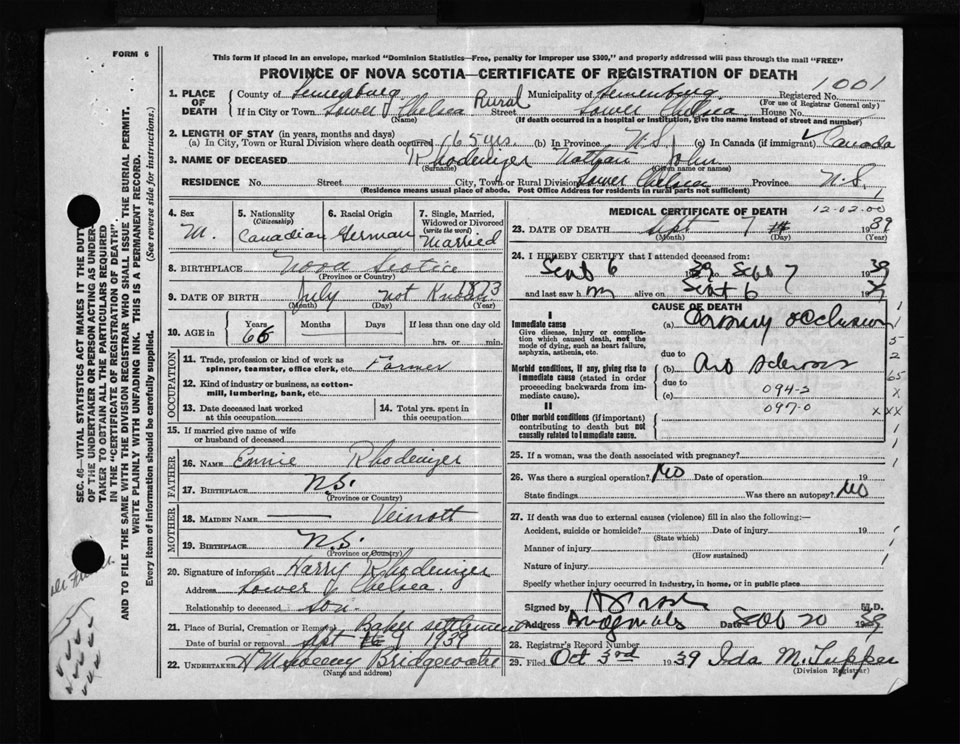 FORM 6
This form if placed in an envelope, marked "Dominion Statistics—Free, penalty for improper use $300," and properly addressed will pass through the mail "FREE"
PROVINCE OF NOVA SCOTIA—CERTIFICATE OF REGISTRATION OF DEATH
1001
1. PLACE OF DEATH
County of Lunenburg Municipality of Lunenburg Registered No.
(For use of Registrar General only)
If in City or Town Lower Chelsea Rural Street Lower Chelsea House No.
(Name) (If death occurred in a hospital or institution, give the name instead of street and number)
2. LENGTH OF STAY (in years, months and days)
(a) In City, Town or Rural Division where death occurred 65 yrs. (b) In Province N.S. (c) In Canada (if immigrant) Canada
3. NAME OF DECEASED Rhodenizer Nathan John
(Surname) (Given name or names)
RESIDENCE No. Street City, Town or Rural Division Lower Chelsea Province N.S.
(Residence means usual place of abode. Post Office Address for residents in rural parts not sufficient)
4. Sex
M.
5. Nationality
(Citizenship)
Canadian
6. Racial Origin
German
7. Single, Married, Widowed or Divorced
(write the word)
Married
8. BIRTHPLACE Nova Scotia
(Province or Country)
9. DATE OF BIRTH July not Known 1873
(Month) (Day) (Year)
10. AGE in
Years Months Days If less than one day old
66 hrs. or min.
OCCUPATION
11. Trade, profession or kind of work as spinner, teamster, office clerk, etc. Farmer
12. Kind of industry or business, as cotton-mill, lumbering, bank, etc.
13. Date deceased last worked at this occupation
14. Total yrs. spent in this occupation
15. If married give name of wife or husband of deceased
FATHER
16. NAME Rhodenizer
17. BIRTHPLACE N.S.
(Province or Country)
MOTHER
18. MAIDEN NAME Veinott
19. BIRTHPLACE N.S.
(Province or Country)
20. Signature of informant Harry Rhodenizer
Address Lower Chelsea.
Relationship to deceased son.
21. Place of Burial, Cremation or Removal Baker settlement
Date of burial or removal Sept 9 1939
22. UNDERTAKER Bridgewater
(Name and address)
MEDICAL CERTIFICATE OF DEATH
12-02-00
23. DATE OF DEATH Sept 7 1939
(Month) (Day) (Year)
24. I HEREBY CERTIFY that I attended deceased from:
Sept 6 1939 Sept 7 1939
and last saw h m alive on Sept 6 19
CAUSE OF DEATH
I
Immediate cause
Give disease, injury or complication which caused death, not the mode of dying, such as heart failure, asphyxia, asthenia, etc.
(a) Coronary occlusion
due to
Morbid conditions, if any, giving rise to immediate cause (stated in order proceeding backwards from immediate cause).
(b) sclerosis
due to
094-2
(c)
097-0
II
Other morbid conditions (if important) contributing to death but not causally related to immediate cause.
1
1
5
2
65
x
xxx
1
1
25. If a woman, was the death associated with pregnancy?
26. Was there a surgical operation? No Date of operation 19
State findings Was there an autopsy? No
27. If death was due to external causes (violence) fill in also the following:—
Accident, suicide or homicide? Date of injury 19
(State which)
Manner of injury
(How sustained)
Nature of injury
Specify whether injury occurred in industry, in home, or in public place
Signed by M.D.
Address Date Sept 20 1939
28. Registrar's Record Number
29. Filed Oct 3rd 1939 Ida M. Tupper
(Division Registrar)
SEC. 46—VITAL STATISTICS ACT MAKES IT THE DUTY
OF THE UNDERTAKER OR PERSON ACTING AS UNDER-
TAKER TO OBTAIN ALL THE PARTICULARS REQUIRED
IN THE "CERTIFICATE OF REGISTRATION OF DEATH"
AND TO FILE THE SAME WITH THE DIVISION REGISTRAR WHO SHALL ISSUE THE BURIAL PERMIT.
WRITE PLAINLY WITH UNFADING INK. THIS IS A PERMANENT RECORD.
Every item of information should be carefully supplied. (See reverse side for instructions.)